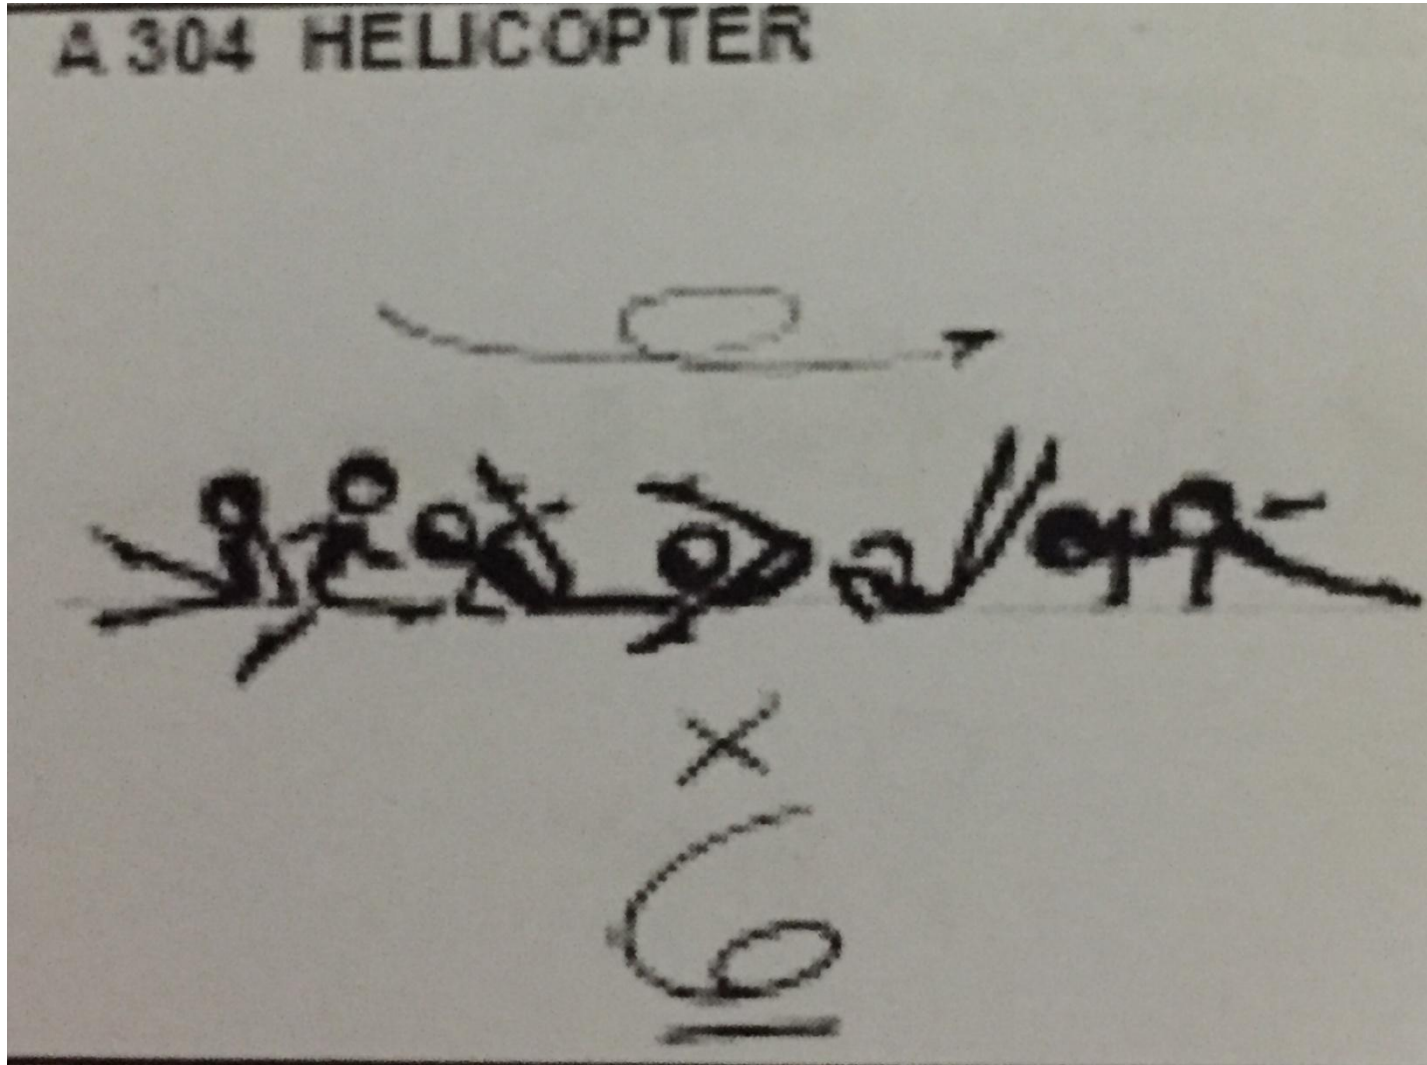 A 304 HELICOPTER